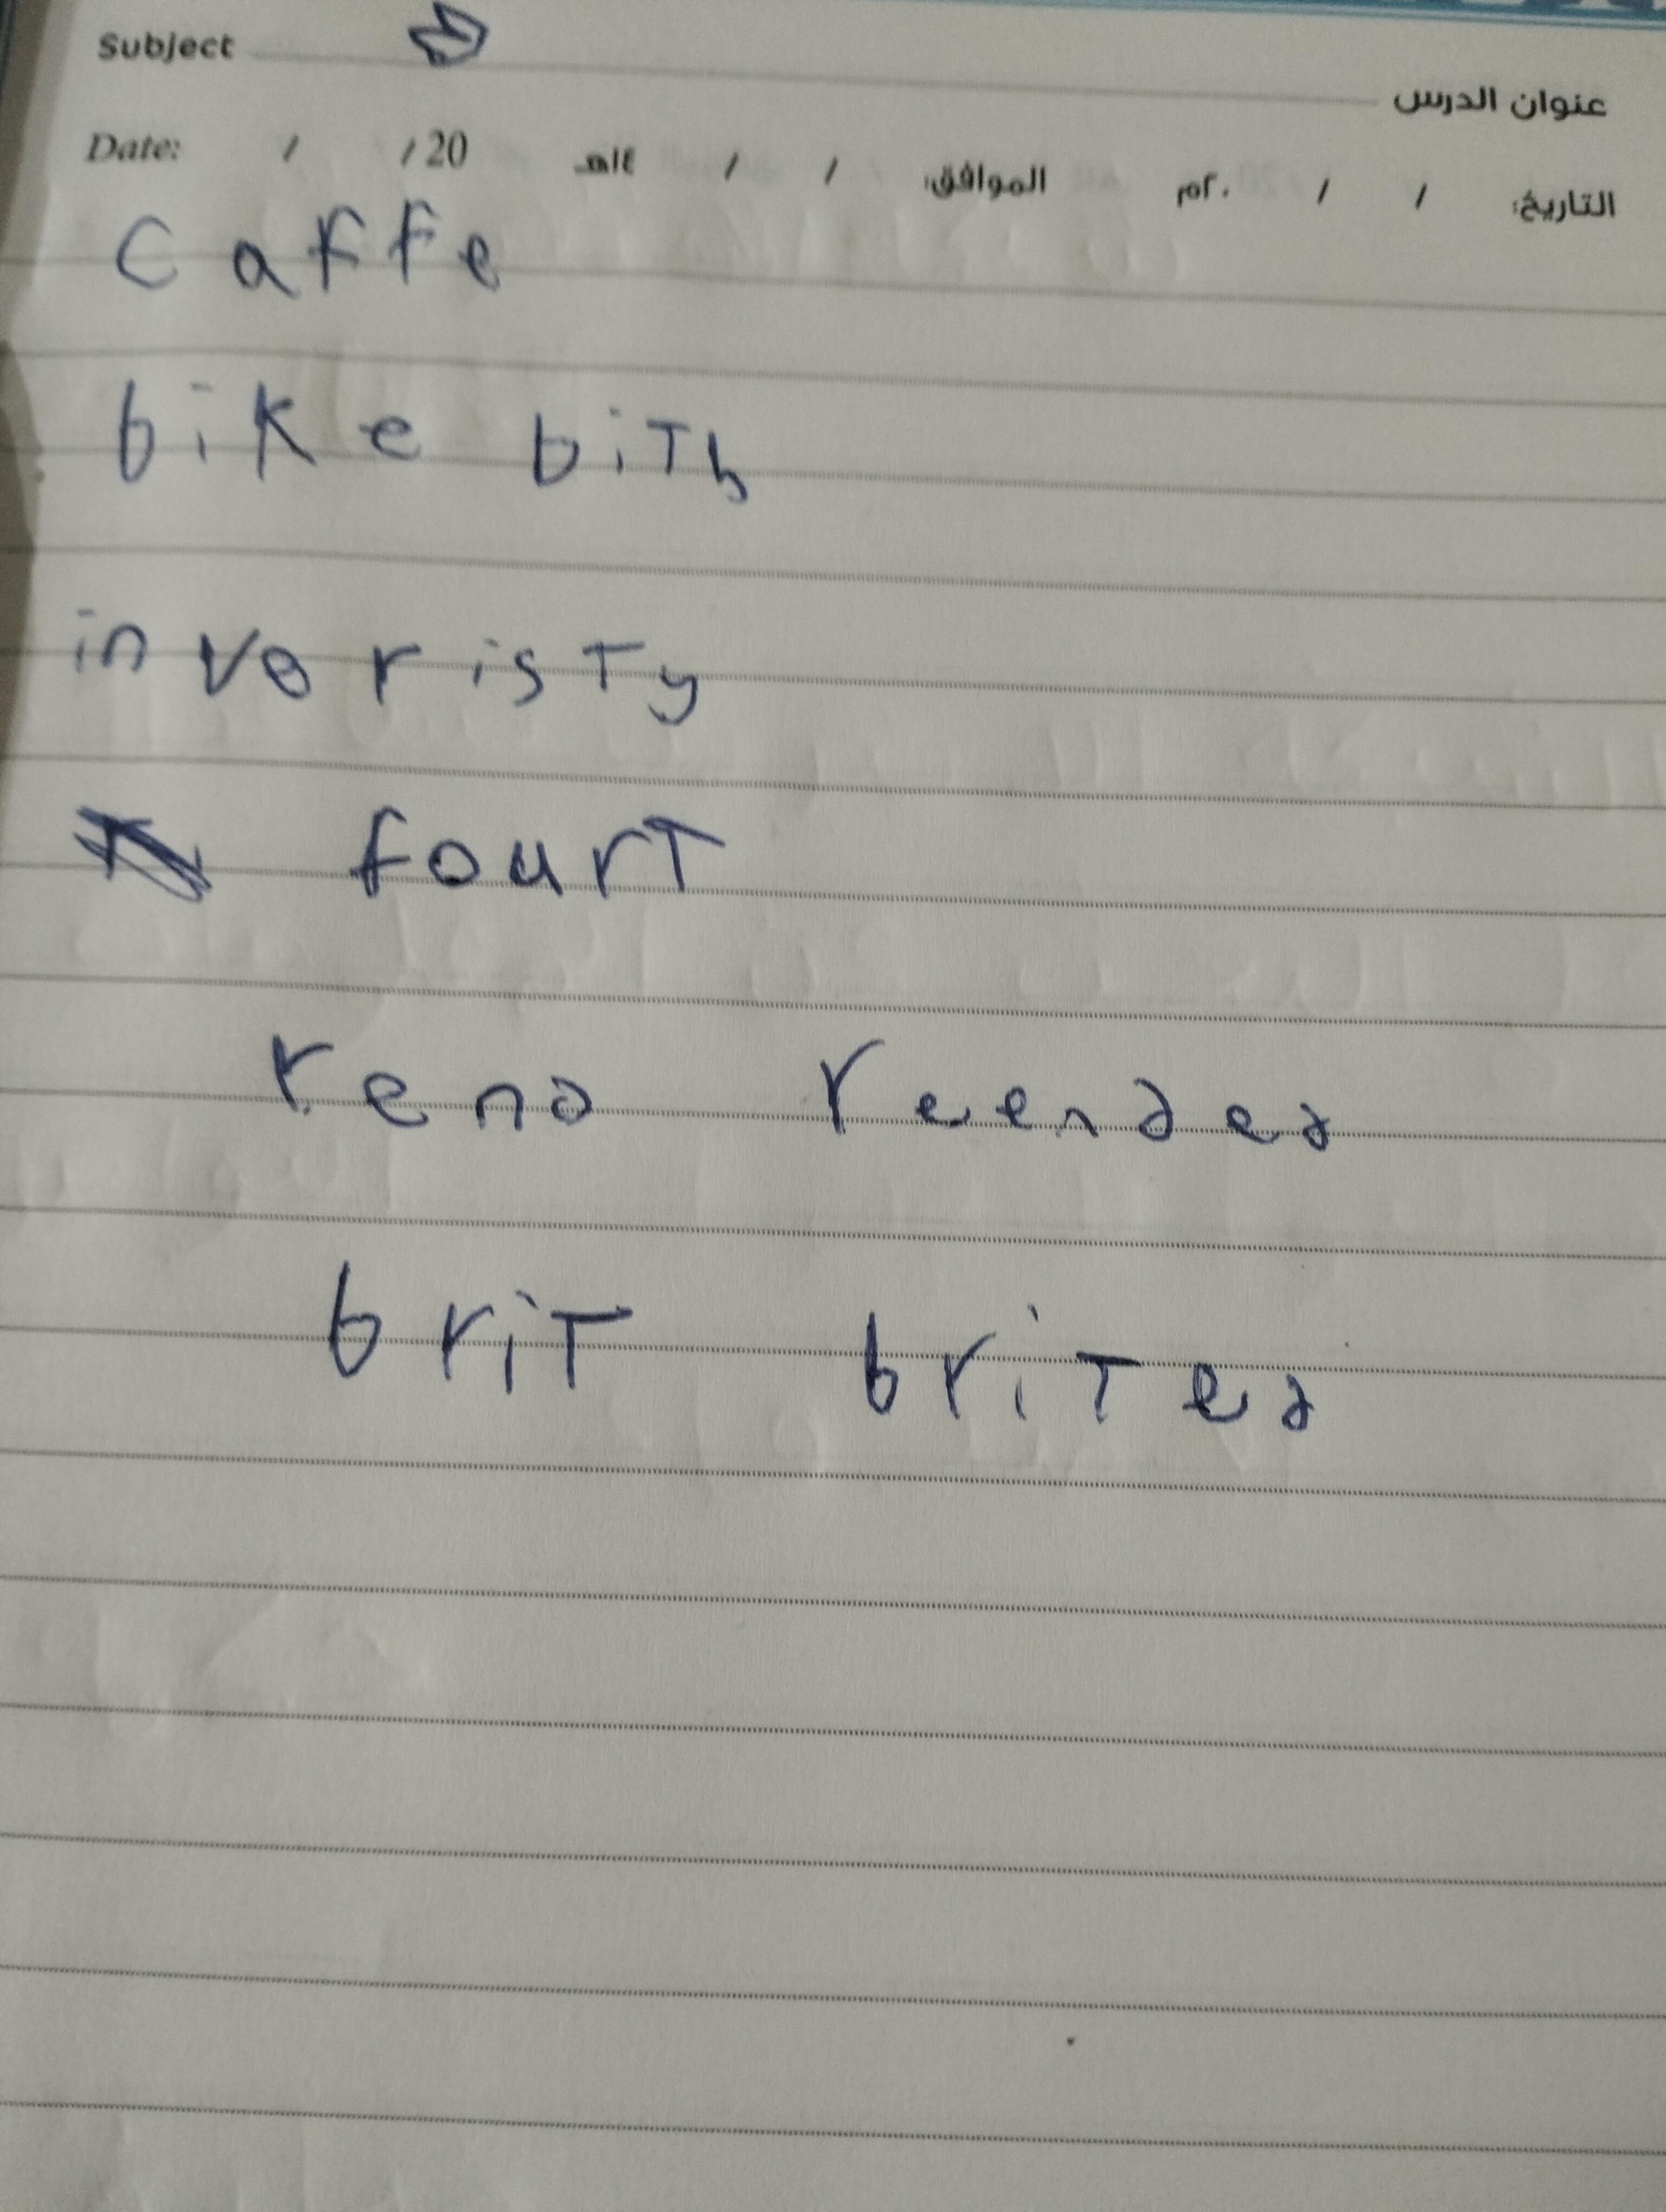 Subject عنوان الدرس
Date: / /20 / / 14هـ الموافق: / / 20م التاريخ:
caffe
bike bith
inveristy
fourt
reno reended
brit brited